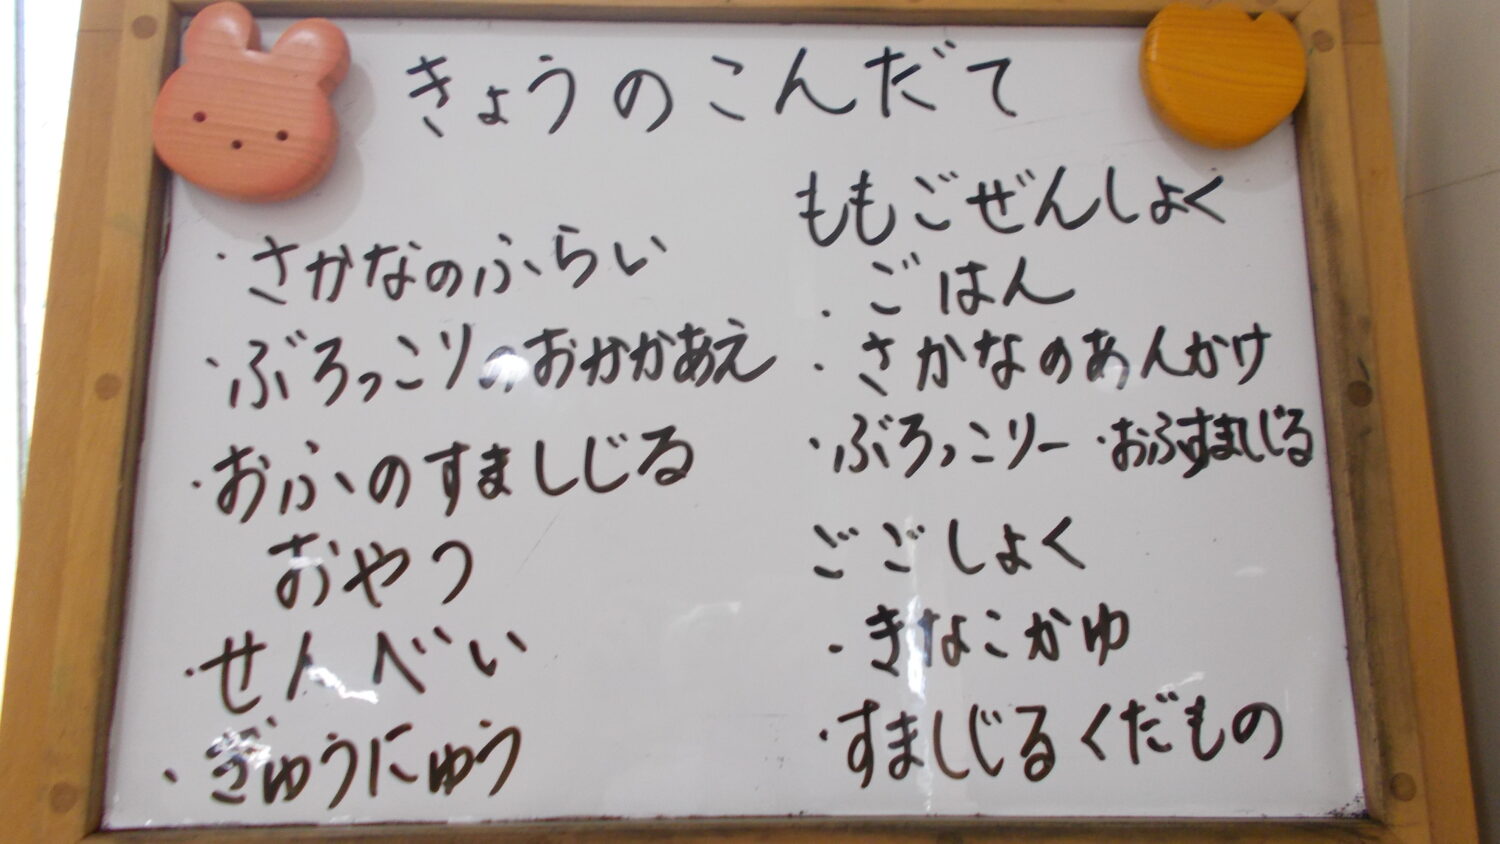 きょうのこんだて
・さかなのふらい
・ぶろっこりのおかかあえ
・おふのすましじる
おやつ
・せんべい
・ぎゅうにゅう
ももごぜんしょく
・ごはん
・さかなのあんかけ
・ぶろっこりー ・おふすましじる
ごごしょく
・きなこかゆ
・すましじるくだもの